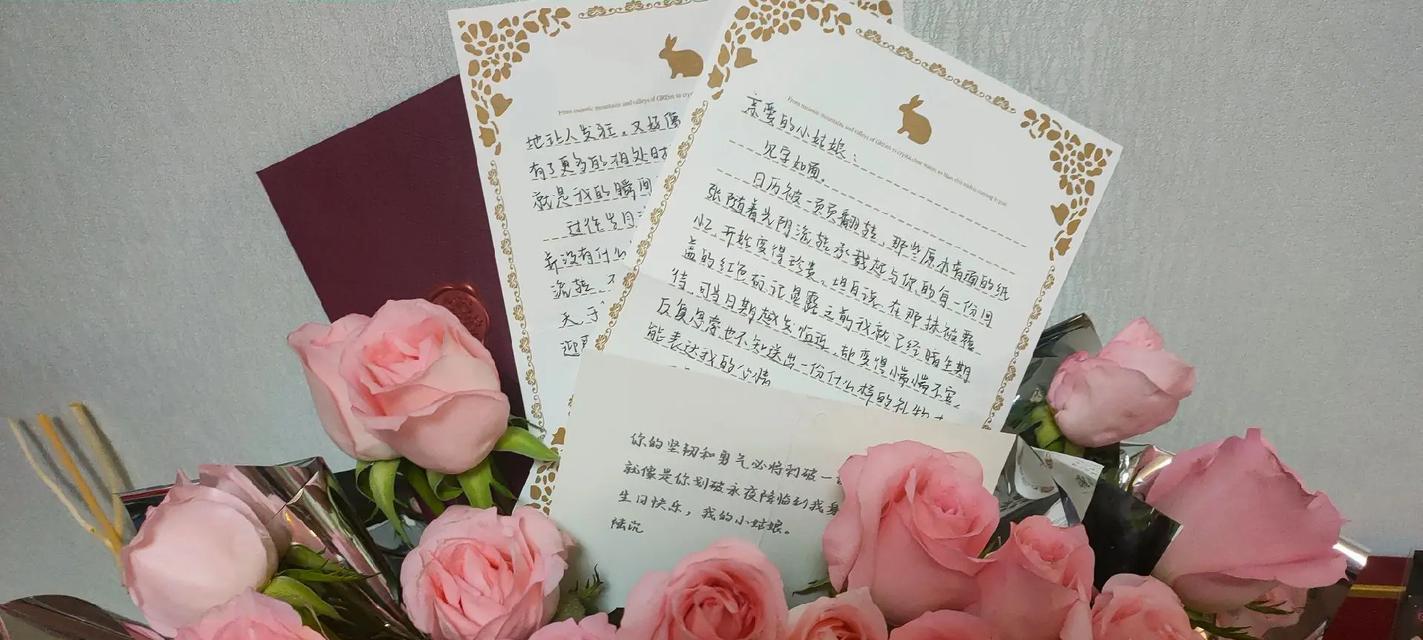 地让人发狂，又好像
有了更多的相处时
就是我的瞬间
过往岁月
并没有什么
流转
天
迎
From majestic mountains and valleys of GREEN to crystal clear waters so blue this wish is coming to you
亲爱的小姑娘：
见字如面。
日历被一页页翻转，那些原本普通的纸
张随着光阴流转承载起与你的每一份回
忆，开始变得珍贵。坦白说，在那抹被覆
盖的红色标记显露之前我就已经暗生期
待，可当日期越发临近，却变得惴惴不安，
反复思索也不知送出一份什么样的礼物才
能表达我的心情
你的坚韧和勇气必将划破一
就像是你划破永夜降临到我身
生日快乐，我的小姑娘。
陆沉